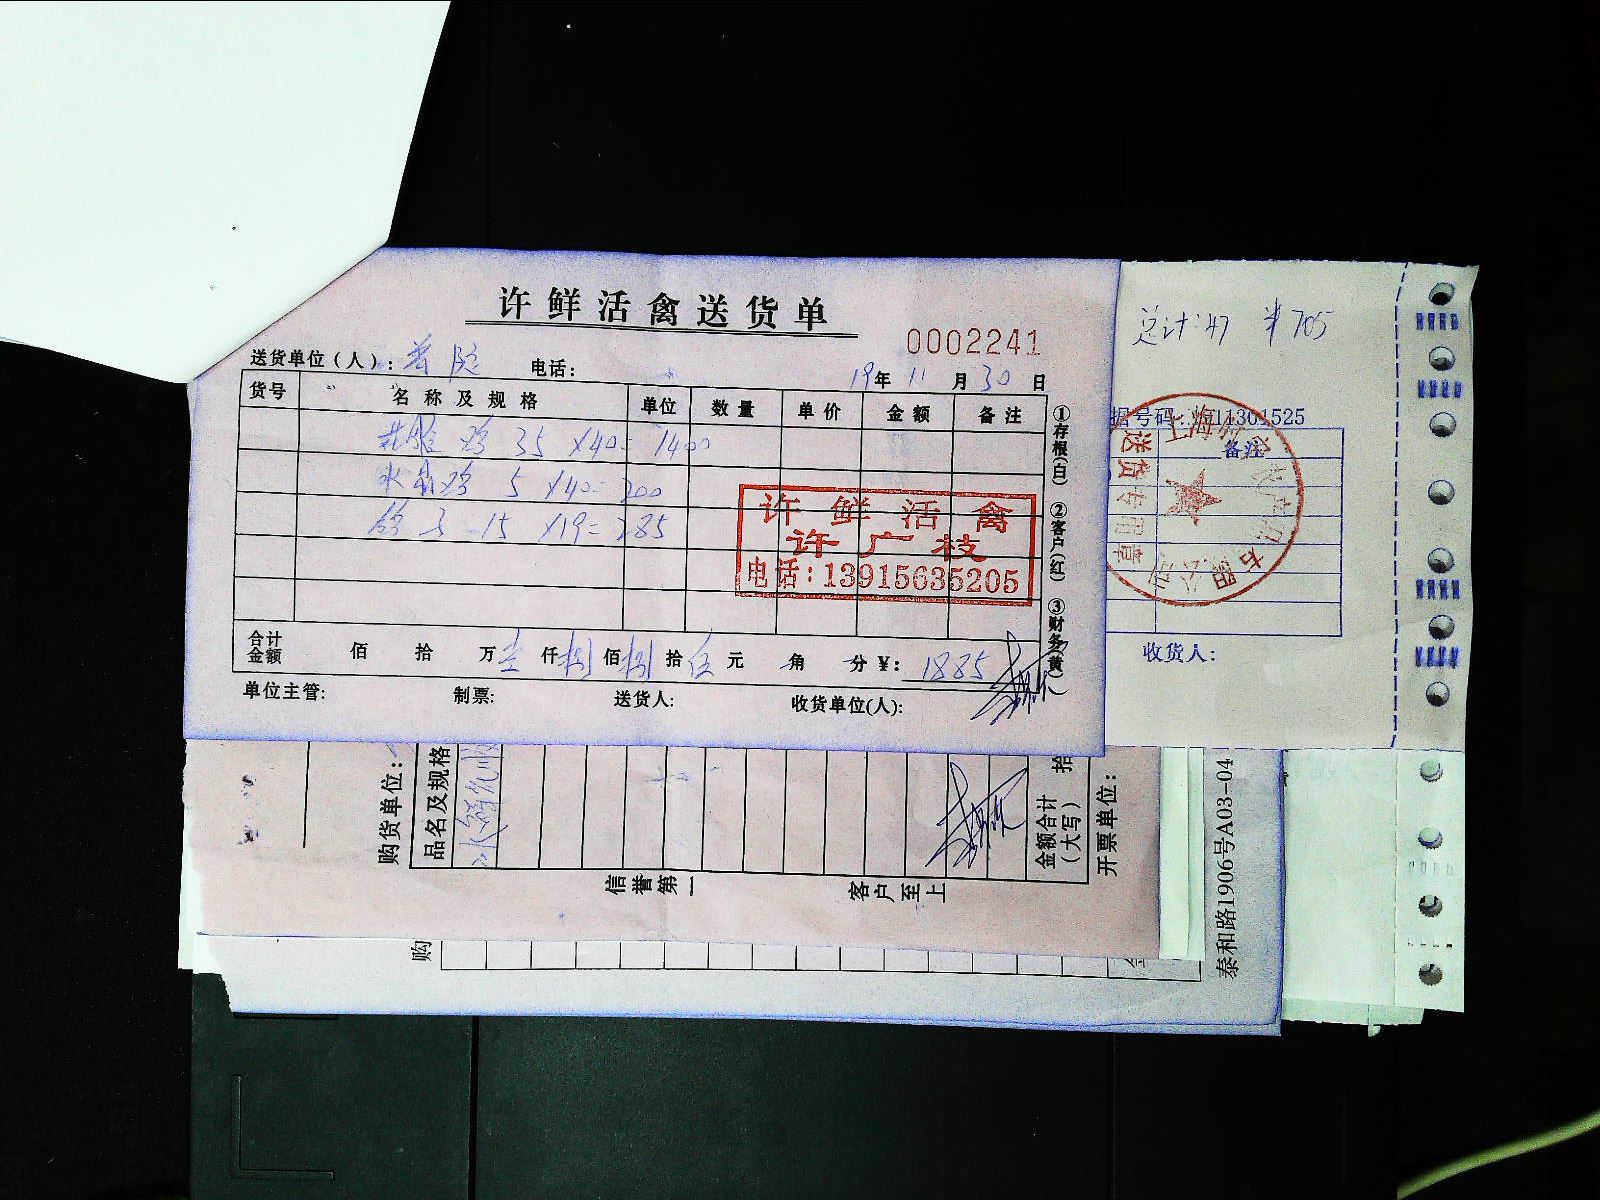 许鲜活禽送货单
0002241
送货单位（人）： 电话：
19年 11月 30日
货号 名称及规格 单位 数量 单价 金额 备注
鸡 35 ×40= 1400
鸡 5 ×40= 200
鸽子 15 ×19= 285
许鲜活禽
许广枝
电话：13915635205
合计金额 佰 拾 万 壹 仟 捌 佰 捌 拾 伍 元 角 分 ¥： 1885
单位主管： 制票： 送货人： 收货单位(人)：
①存根(白) ②客户(红) ③财务(黄)
总计：47 ¥705
据号码：
备注
送货专用章
收货人：
购货单位：
品名及规格
金额合计（大写）
拾
开票单位：
信誉第一 客户至上
购
泰和路1906号A03-04